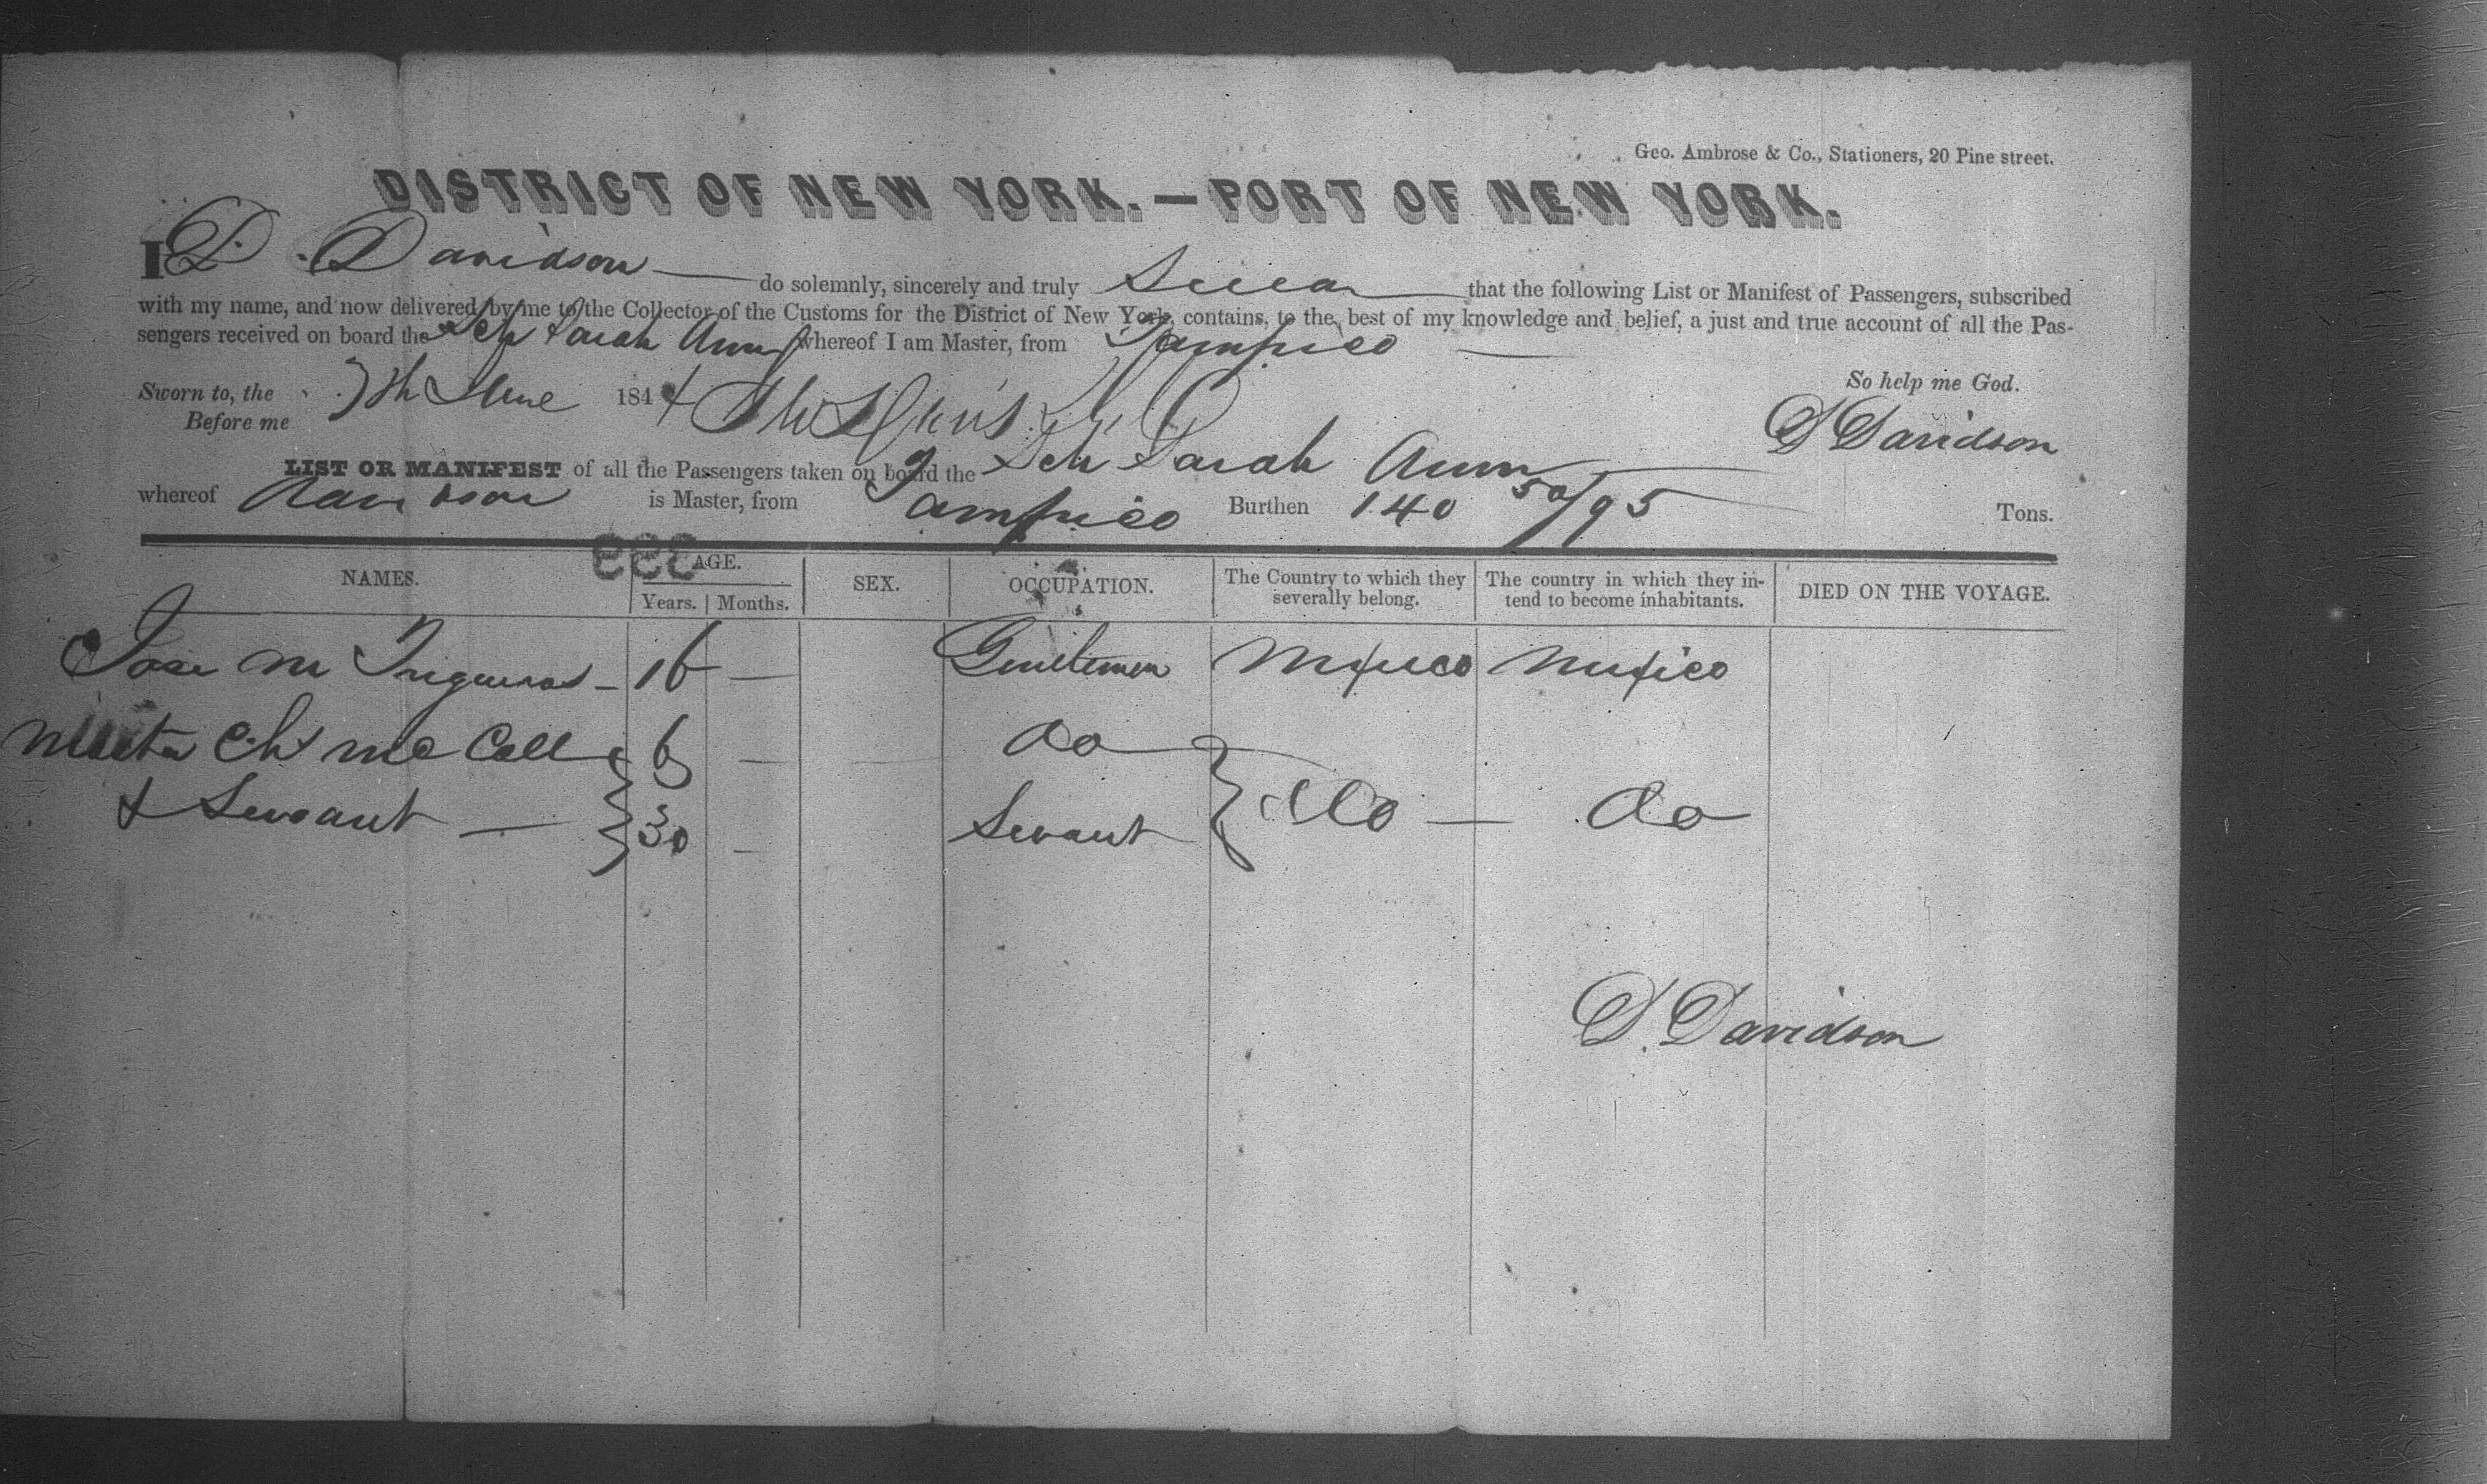 Geo. Ambrose & Co., Stationers, 20 Pine street.
DISTRICT OF NEW YORK.—PORT OF NEW YORK.
I D. Davidson do solemnly, sincerely and truly Swear that the following List or Manifest of Passengers, subscribed
with my name, and now delivered by me to the Collector of the Customs for the District of New York, contains, to the best of my knowledge and belief, a just and true account of all the Pas-
sengers received on board the Sch Sarah Ann whereof I am Master, from Tampico
So help me God.
Sworn to, the 7th June 1844
D Davidson
Before me
LIST OR MANIFEST of all the Passengers taken on board the Sch Sarah Ann
whereof Davidson is Master, from Tampico Burthen 140 50/95 Tons.
NAMES. AGE. SEX. OCCUPATION. The Country to which they severally belong. The country in which they in- tend to become inhabitants. DIED ON THE VOYAGE.
Years. Months.
Jose M Trigueros — 16 — Gentleman Mexico Mexico
Master Ch Mc Call 6 — do
do — do
& Servant — 30 — Servant
D. Davidson